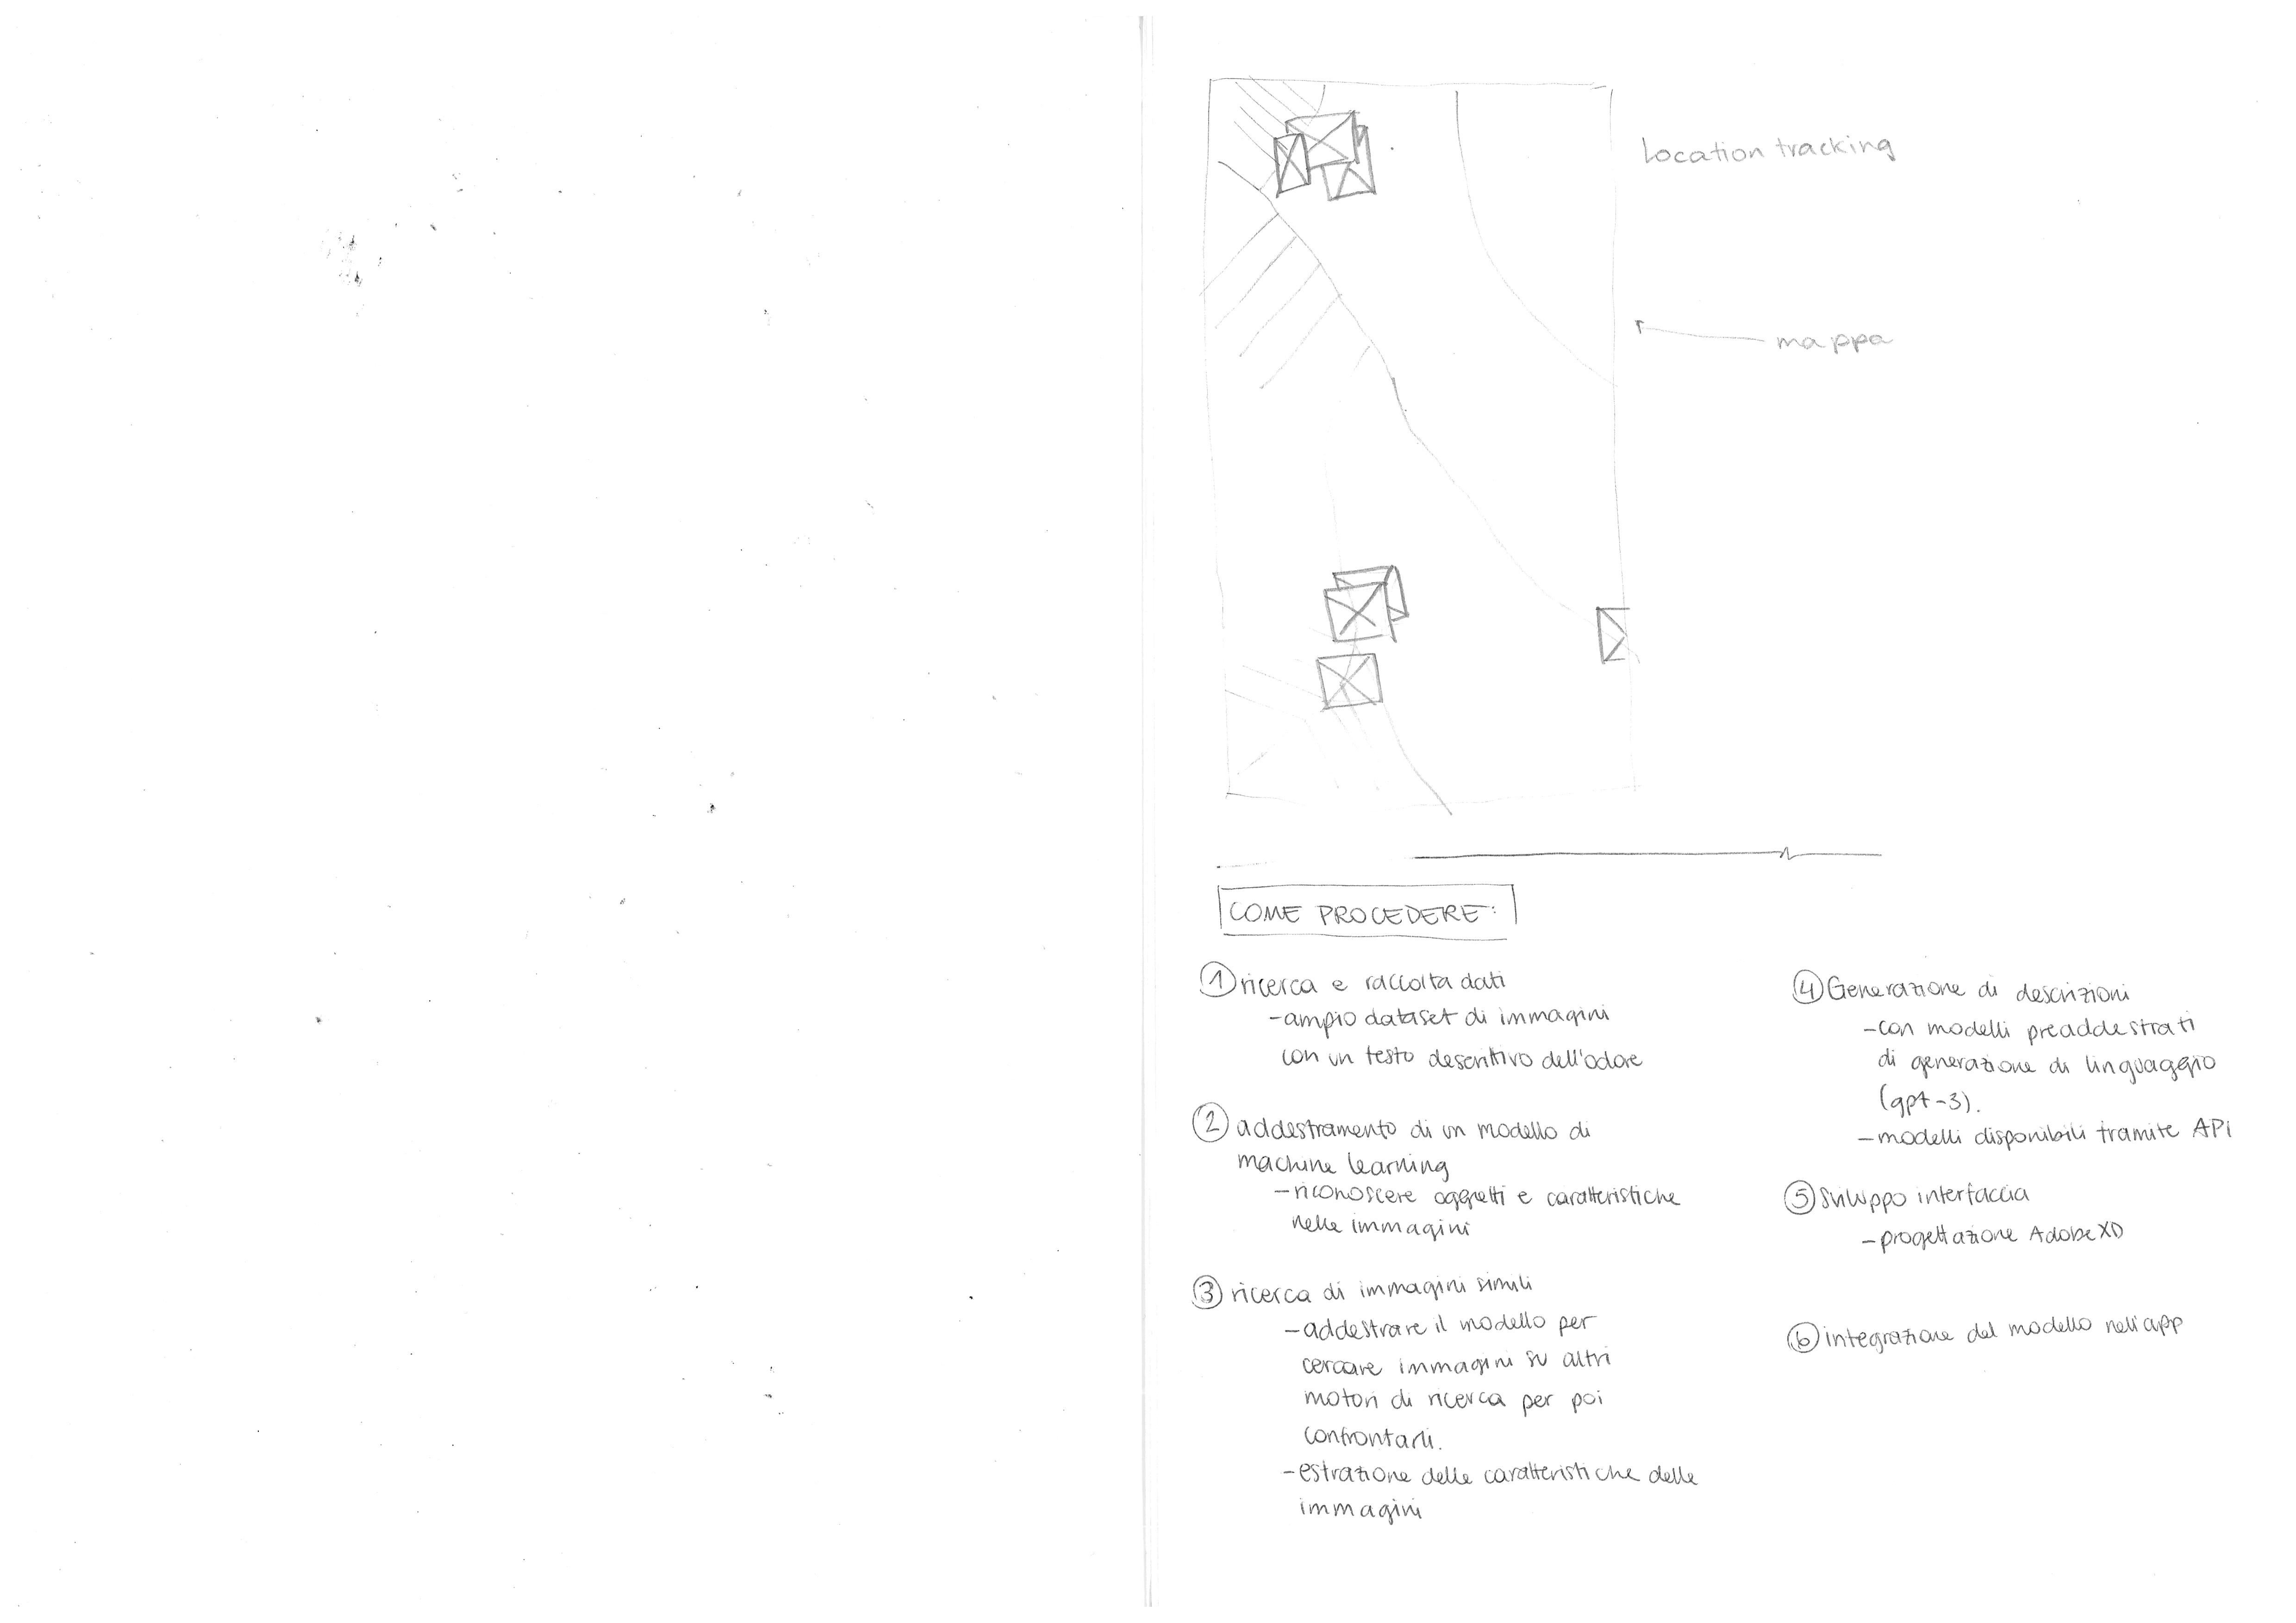 Location tracking
mappa
COME PROCEDERE:
① ricerca e raccolta dati
- ampio dataset di immagini
con un testo descrittivo dell'odore
② addestramento di un modello di
machine learning
- riconoscere oggetti e caratteristiche
nelle immagini
③ ricerca di immagini simili
- addestrare il modello per
cercare immagini su altri
motori di ricerca per poi
confrontarli.
- estrazione delle caratteristiche delle
immagini
④ Generazione di descrizioni
- con modelli preaddestrati
di generazione di linguaggio
(gpt-3).
- modelli disponibili tramite API
⑤ sviluppo interfaccia
- progettazione Adobe XD
⑥ integrazione del modello nell'app